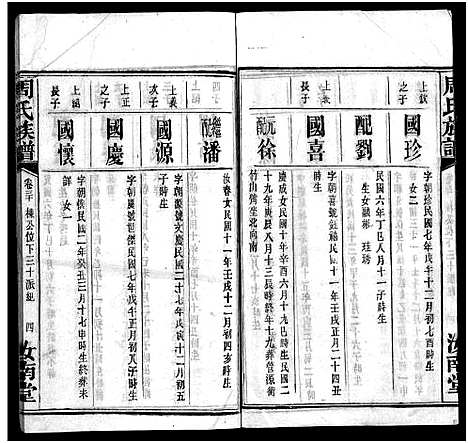 周氏族譜
汝南堂
上欽
之子
國珍
字朝珍民國七年戊午十二月初七酉時生
女二
配劉
民國六年丁巳八月十一子時生
生女
上義
長子
國喜
字朝喜號
十一年壬戌正月二十四丑
時生
元配
徐
慶成女民國十年辛酉六月十九巳時生民國二
十九年庚辰八月十三辰時終年十九葬管源衕
竹山
繼配
潘
汝春女民國十一年壬戌十二月初四亥時生
上義
次子
國源
字朝源號文慶民國二十七年戊寅十二月初五
子時生
上正
之子
國慶
字朝慶號世傑民國七年戊午五月初八子時生
上福
長子
國懷
字朝懷民國二年癸丑三月十七申時生終葬未
詳女一
周氏族譜
卷三十
棟公位下三十派組
四
汝南堂